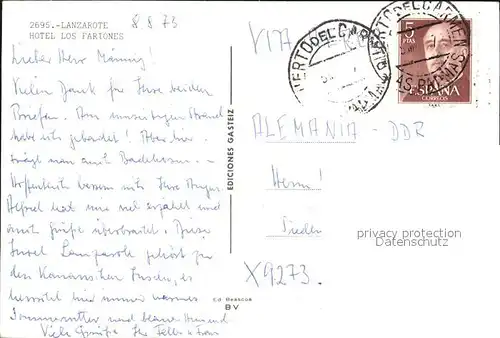 2695.-LANZAROTE
HOTEL LOS FARIONES
8 8 73
Lieber Herr
Vielen Dank für Ihre beiden
Briefen. Am Strand
habe ich gebadet! Aber hier
trägt man auch Badehosen. -
Hoffentlich bessern sich Ihre Augen.
Alfred hat mir viel erzählt und
auch Grüße überbracht. Diese
Insel Lanzarote gehört zu
den Kanarischen Inseln, es
herrscht hier immer warmes
Sommerwetter und blauer Himmel
Viele Grüße Ihr u. Frau
EDICIONES GASTEIZ
Ed Beascoa
BV
VIA
PUERTO DEL CARMEN
PUERTO DEL CARMEN
LAS PALMAS
5
PTAS
ESPAÑA
CORREOS
ALEMANIA - DDR
Herrn!
X9273
privacy protection
AnsichtskartenVersand